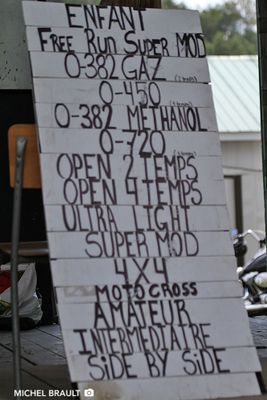 ENFANT
FREE RUN SUPER MOD
0-382 GAZ (2 temps)
0-450 (2 temps)
0-382 METHANOL
0-720 (2 temps)
OPEN 2 TEMPS
OPEN 4 TEMPS
ULTRA LIGHT
SUPER MOD
4X4
MOTOCROSS
AMATEUR
INTERMEDIAIRE
SIDE BY SIDE
MICHEL BRAULT